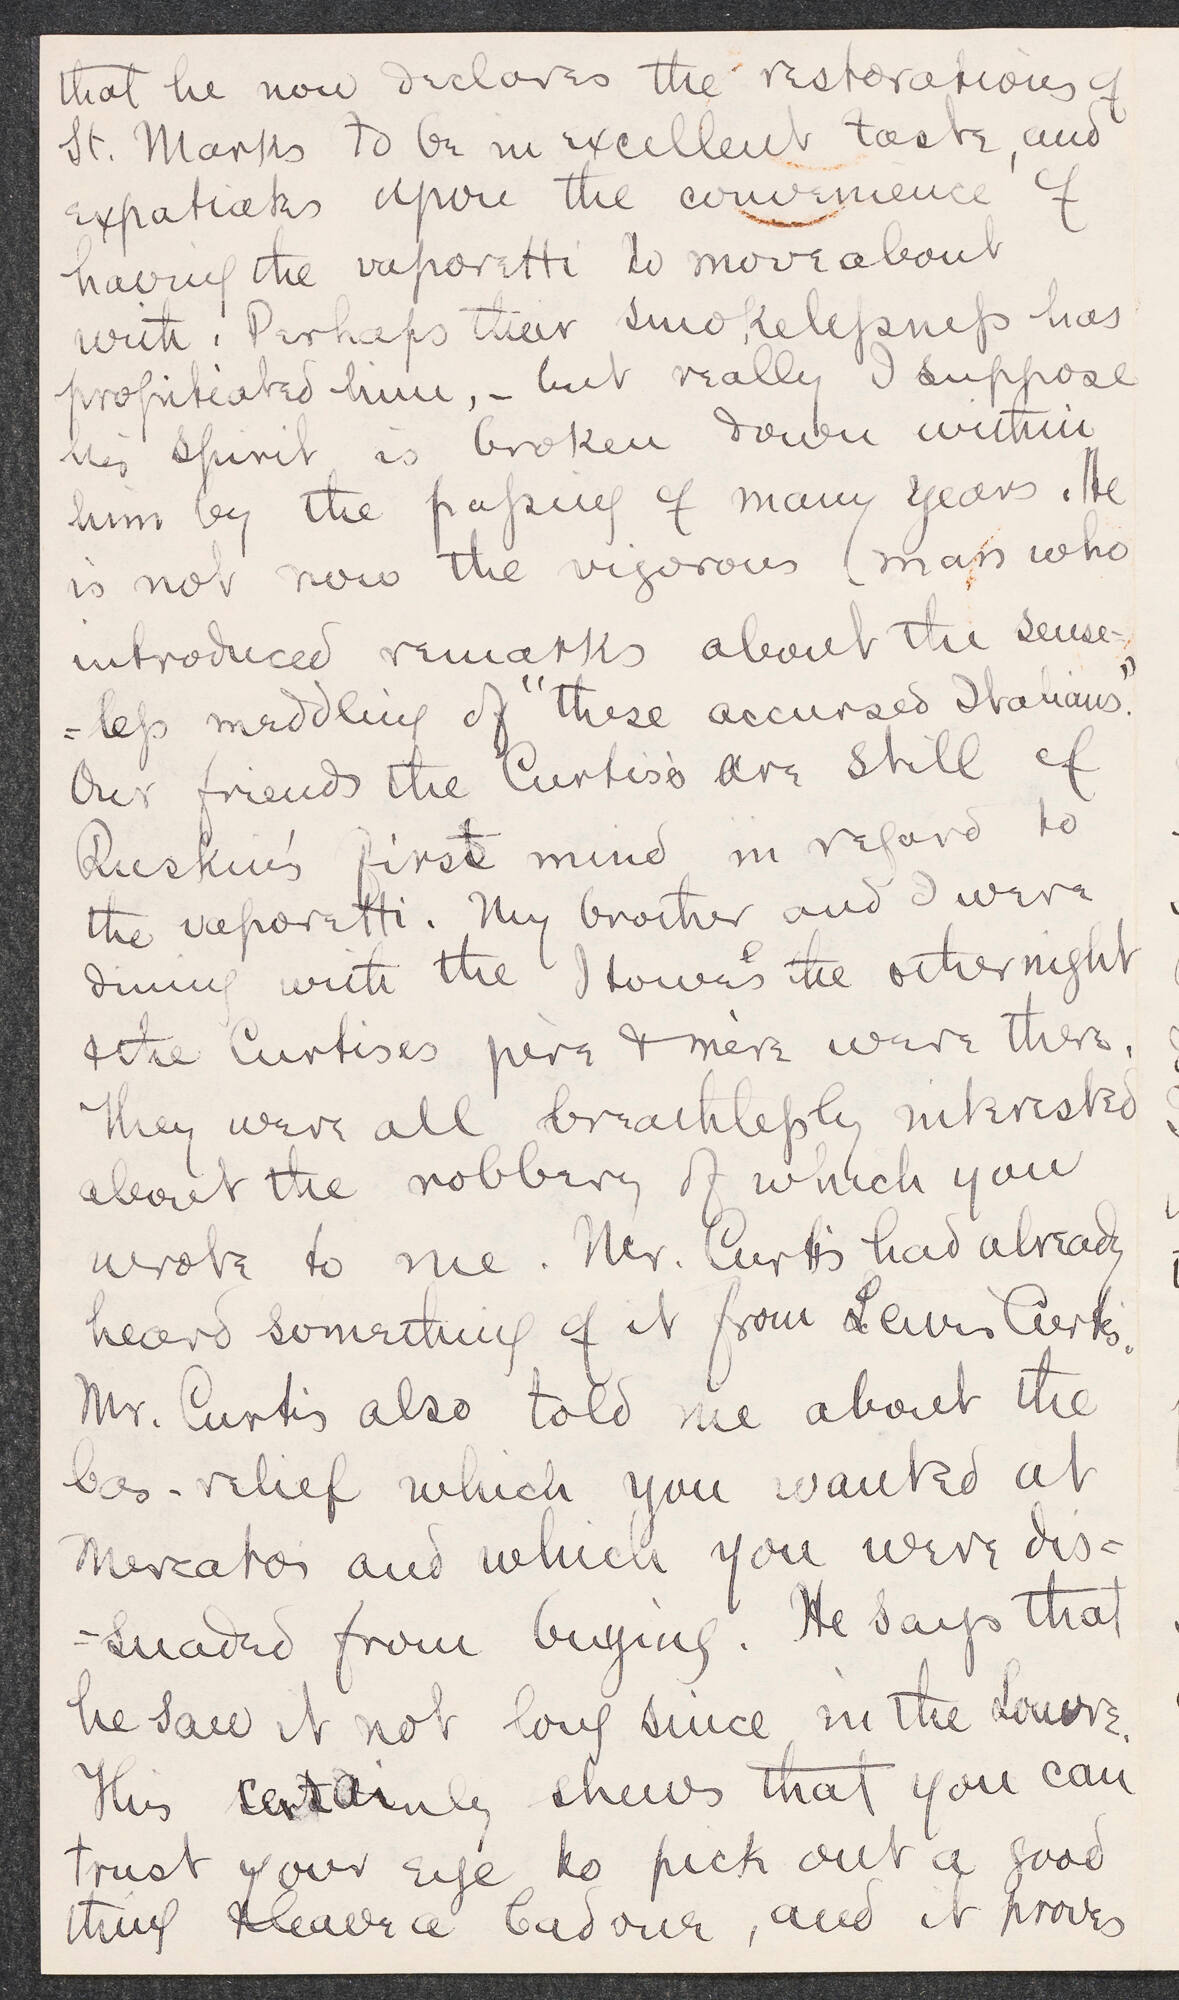 that he now declares the restorations of
St. Marks to be in excellent taste, and
expatiates upon the convenience of
having the vaporetti to move about
with. Perhaps their smokelessness has
propitiated him, - but really I suppose
his spirit is broken down within
him by the passing of many years. He
is not now the vigorous man who
introduced remarks about the sense-
-less meddling of "these accursed Italians."
Our friends the Curtiss are still of
Ruskin's first mind in regard to
the vaporetti. My brother and I were
dining with the Stowe's the other night
& the Curtises père & mère were there.
They were all breathlessly interested
about the robbery of which you
wrote to me. Mr. Curtis had already
heard something of it from Lewis Curtis.
Mr. Curtis also told me about the
bas-relief which you wanted at
Mercatos and which you were dis-
-suaded from buying. He says that
he saw it not long since in the Louvre.
This certainly shews that you can
trust your eye to pick out a good
thing & leave a bad one, and it proves